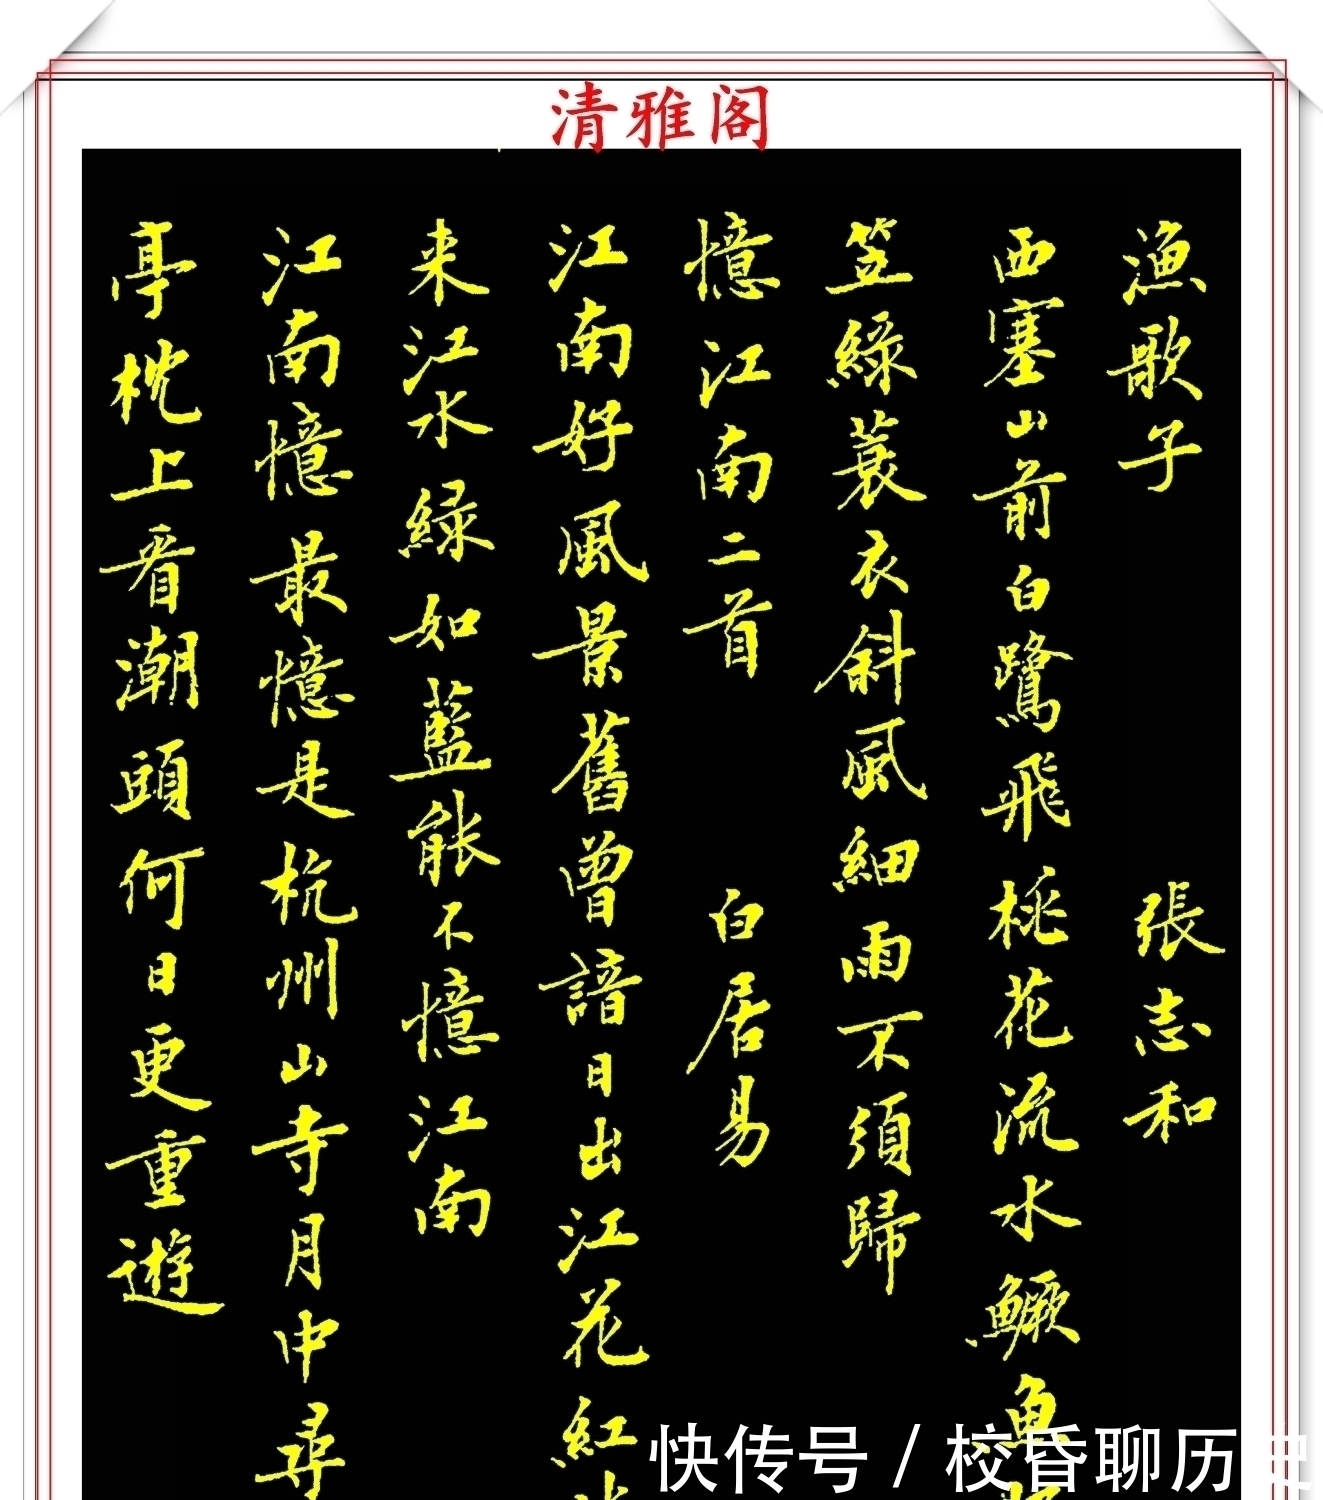 清雅阁
漁歌子 張志和
西塞山前白鷺飛桃花流水鱖魚
笠綠蓑衣斜風細雨不須歸
憶江南二首 白居易
江南好風景舊曾諳日出江花紅
来江水綠如藍能不憶江南
江南憶最憶是杭州山寺月中尋
亭枕上看潮頭何日更重遊
快传号 / 校昏聊历史